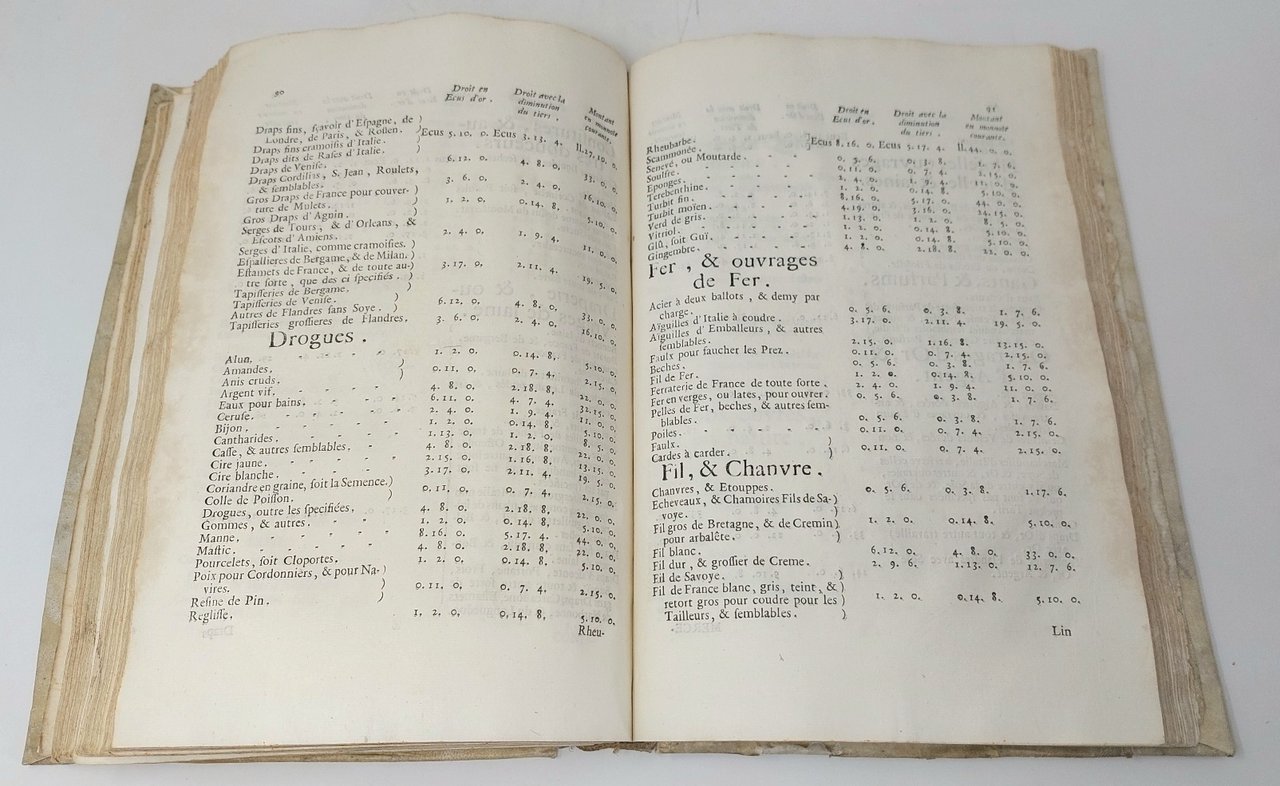 90
Droit en Ecus d'or.
Droit avec la diminution du tiers.
Montant en monnoie courante.
Draps fins, ſçavoir d'Eſpagne, de )
Londre, de Paris, & Roſſen. ) Ecus 5. 10. 0. Ecus 3. 13. 4. ll. 27. 10. 0.
Draps fins cramoiſis d'Italie. )
Draps dits de Raſes d'Italie. )
Draps de Veniſe. ) 6. 12. 0. 4. 8. 0. 33. 0. 0.
Draps Cordilins, S. Jean, Roulets,
& ſemblables. 3. 6. 0. 2. 4. 0. 16. 10. 0.
Gros Draps de France pour couver- )
ture de Mulets. ) 1. 2. 0. 0. 14. 8. 5. 10. 0.
Gros Draps d'Agnin. )
Serges de Tours, & d'Orleans, &
Eſcots d'Amiens. 2. 4. 0. 1. 9. 4. 11. 0. 0.
Serges d'Italie, comme cramoiſies. )
Eſpallieres de Bergame, & de Milan. )
Eſtamets de France, & de toute au- ) 3. 17. 0. 2. 11. 4. 19. 5. 0.
tre ſorte, que des ci ſpecifiés. )
Tapiſſeries de Bergame. )
Tapiſſeries de Veniſe. ) 6. 12. 0. 4. 8. 0. 33. 0. 0.
Autres de Flandres ſans Soye. )
Tapiſſeries groſſieres de Flandres. 3. 6. 0. 2. 4. 0. 16. 10. 0.
Drogues.
Alun. 1. 2. 0. 0. 14. 8. 5. 10. 0.
Amandes. )
Anis cruds. ) 0. 11. 0. 0. 7. 4. 2. 15. 0.
Argent vif. 4. 8. 0. 2. 18. 8. 22. 0. 0.
Eaux pour bains. 6. 11. 0. 4. 7. 4. 32. 15. 0.
Ceruſe. 2. 4. 0. 1. 9. 4. 11. 0. 0.
Bijon. 1. 2. 0. 0. 14. 8. 5. 10. 0.
Cantharides. 1. 13. 0. 1. 2. 0. 8. 5. 0.
Caſſe, & autres ſemblables. 4. 8. 0. 2. 18. 8. 22. 0. 0.
Cire jaune. 2. 15. 0. 1. 16. 8. 13. 15. 0.
Cire blanche. 3. 17. 0. 2. 11. 4. 19. 5. 0.
Coriandre en graine, ſoit la Semence. )
Colle de Poiſſon. ) 0. 11. 0. 0. 7. 4. 2. 15. 0.
Drogues, outre les ſpecifiées. 4. 8. 0. 2. 18. 8. 22. 0. 0.
Gommes, & autres. 1. 2. 0. 0. 14. 8. 5. 10. 0.
Manne. 8. 16. 0. 5. 17. 4. 44. 0. 0.
Maſtic. 4. 8. 0. 2. 18. 8. 22. 0. 0.
Pourcelets, ſoit Cloportes. 1. 2. 0. 0. 14. 8. 5. 10. 0.
Poix pour Cordonniers, & pour Na- )
vires. ) 0. 11. 0. 0. 7. 4. 2. 15. 0.
Reſine de Pin. )
Regliſſe. 1. 2. 0. 0. 14. 8. 5. 10. 0.
Rheu-
91
Droit en Ecus d'or.
Droit avec la diminution du tiers.
Montant en monnoie courante.
Rheubarbe. )
Scammonée. ) Ecus 8. 16. 0. Ecus 5. 17. 4. ll. 44. 0. 0.
Senevé, ou Moutarde. 0. 5. 6. 0. 3. 8. 1. 7. 6.
Soulfre. 0. 11. 0. 0. 7. 4. 2. 15. 0.
Eponges. 2. 4. 0. 1. 9. 4. 11. 0. 0.
Terebenthine. 1. 2. 0. 0. 14. 8. 5. 10. 0.
Turbit fin. 8. 16. 0. 5. 17. 0. 44. 0. 0.
Turbit moïen. 4. 19. 0. 3. 16. 0. 24. 15. 0.
Verd de gris. 1. 13. 0. 1. 2. 0. 8. 5. 0.
Vitriol. 1. 2. 0. 0. 14. 8. 5. 10. 0.
Glû, ſoit Guï. 1. 2. 0. 0. 14. 8. 5. 10. 0.
Gingembre. 4. 8. 0. 2. 18. 8. 22. 0. 0.
Fer, & ouvrages
de Fer.
Acier à deux ballots, & demy par
charge. 0. 5. 6. 0. 3. 8. 1. 7. 6.
Aiguilles d'Italie à coudre. 3. 17. 0. 2. 11. 4. 19. 5. 0.
Aiguilles d'Emballeurs, & autres
ſemblables. 2. 15. 0. 1. 16. 8. 13. 15. 0.
Faulx pour faucher les Prez. 0. 11. 0. 0. 7. 4. 2. 15. 0.
Beches. 0. 5. 6. 0. 3. 8. 1. 7. 6.
Fil de Fer. 1. 2. 0. 0. 14. 8. 5. 10. 0.
Ferraterie de France de toute ſorte. 2. 4. 0. 1. 9. 4. 11. 0. 0.
Fer en verges, ou lates, pour ouvrer. 0. 5. 6. 0. 3. 8. 1. 7. 6.
Pelles de Fer, beches, & autres ſem-
blables. 0. 5. 6. 0. 3. 8. 1. 7. 6.
Poiles. 0. 11. 0. 0. 7. 4. 2. 15. 0.
Faulx. )
Cardes à carder. ) 0. 11. 0. 0. 7. 4. 2. 15. 0.
Fil, & Chanvre.
Chanvres, & Etouppes. 0. 5. 6. 0. 3. 8. 1. 17. 6.
Echeveaux, & Chamoires Fils de Sa- )
voye. )
Fil gros de Bretagne, & de Cremin ) 1. 2. 0. 0. 14. 8. 5. 10. 0.
pour arbalête. )
Fil blanc. 6. 12. 0. 4. 8. 0. 33. 0. 0.
Fil dur, & groſſier de Creme. 2. 9. 6. 1. 13. 0. 12. 7. 6.
Fil de Savoye. )
Fil de France blanc, gris, teint, & )
retort gros pour coudre pour les ) 1. 2. 0. 0. 14. 8. 5. 10. 0.
Tailleurs, & ſemblables. )
Lin